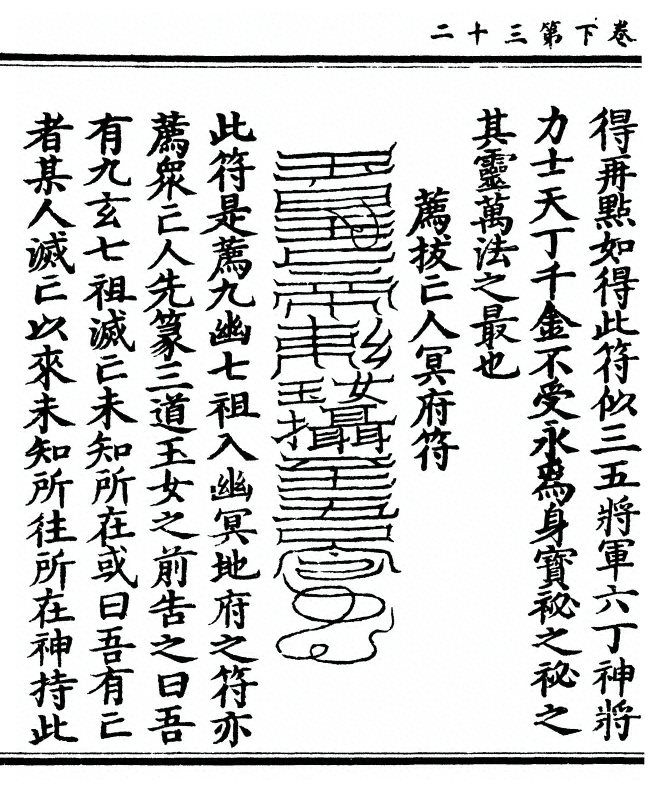 卷下第三十二
得再點如得此符似三五將軍六丁神將
力士天丁千金不受永為身寶祕之祕之
其靈萬法之最也
薦拔亡人冥府符
此符是薦九幽七祖入幽冥地府之符亦
薦眾亡人先篆三道玉女之前告之曰吾
有九玄七祖滅亡未知所在或曰吾有亡
者某人滅亡以來未知所往所在神持此